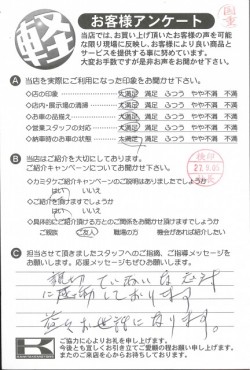 軽
お客様アンケート
当店では、お買い上げ頂いたお客様の声を可能
な限り現場に反映し、お客様により良い商品と
サービスを提供する事に努めています。
大変お手数ですが是非お声をお聞かせ下さい。
A 当店を実際にご利用になった印象をお聞かせ下さい。
◇店の印象 大満足 満足 ふつう やや不満 不満
◇店内・展示場の清掃 大満足 満足 ふつう やや不満 不満
◇お車の品揃え 大満足 満足 ふつう やや不満 不満
◇営業スタッフの対応 大満足 満足 ふつう やや不満 不満
◇納車時のお車の状態 大満足 満足 ふつう やや不満 不満
B 当店はご紹介を大切にしております。
ご紹介キャンペーンについてお聞かせ下さい。
◇カミタケご紹介キャンペーンのご説明はありましたでしょうか
はい いいえ
◇ご紹介を頂けますでしょうか
はい いいえ
◇具体的にご紹介頂ける方とのご関係をお聞かせ頂けますでしょうか
ご親戚 ご友人 職場の方 機会があれば紹介したい
C 担当させて頂きましたスタッフへのご指摘、ご指導メッセージを
お願いします。応援メッセージもぜひお願いします。
親切でていねいな応対
に感動しております
益々お世話になります。
K
ご協力に心よりお礼を申し上げます。
今後とも宜しくお引き立てご愛顧の程お願い申し上げます。
またのご来店を心からお待ちしております。